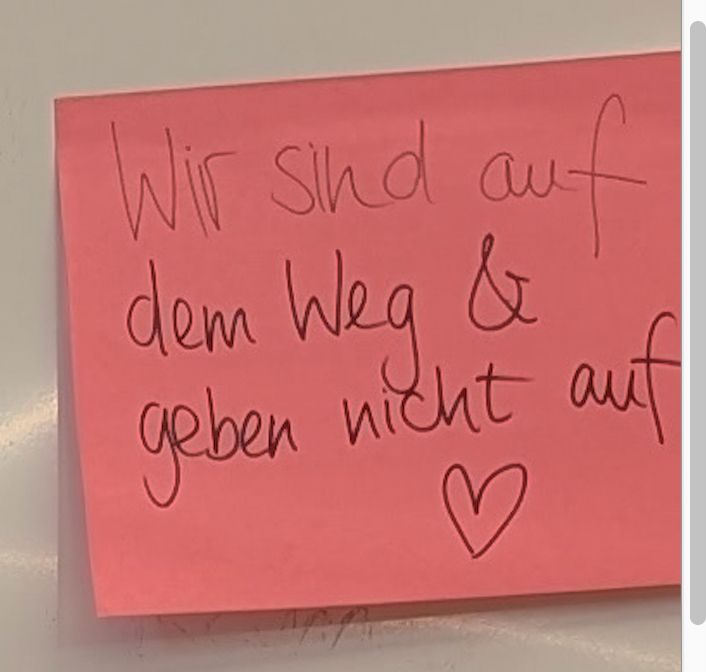 Wir sind auf
dem Weg &
geben nicht auf
♡